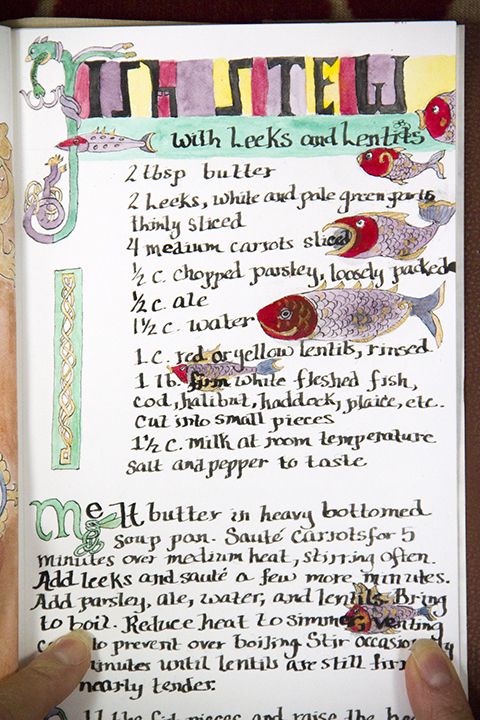 FISH STEW
with Leeks and Lentils
2 tbsp butter
2 Leeks, white and pale green parts
thinly sliced
4 medium carrots sliced
½ c. chopped parsley, loosely packed
½ c. ale
1½ c. water
1 c. red or yellow lentils, rinsed
1 lb. firm white fleshed fish,
cod, halibut, haddock, plaice, etc..
cut into small pieces
1½ c. milk at room temperature
salt and pepper to taste
Melt butter in heavy bottomed
soup pan. Sauté carrots for 5
minutes over medium heat, stirring often.
Add leeks and sauté a few more minutes.
Add parsley, ale, water, and lentils. Bring
to boil. Reduce heat to simmer, venting
to prevent over boiling. Stir
minutes until lentils are still
nearly tender.
the fish pieces and raise the